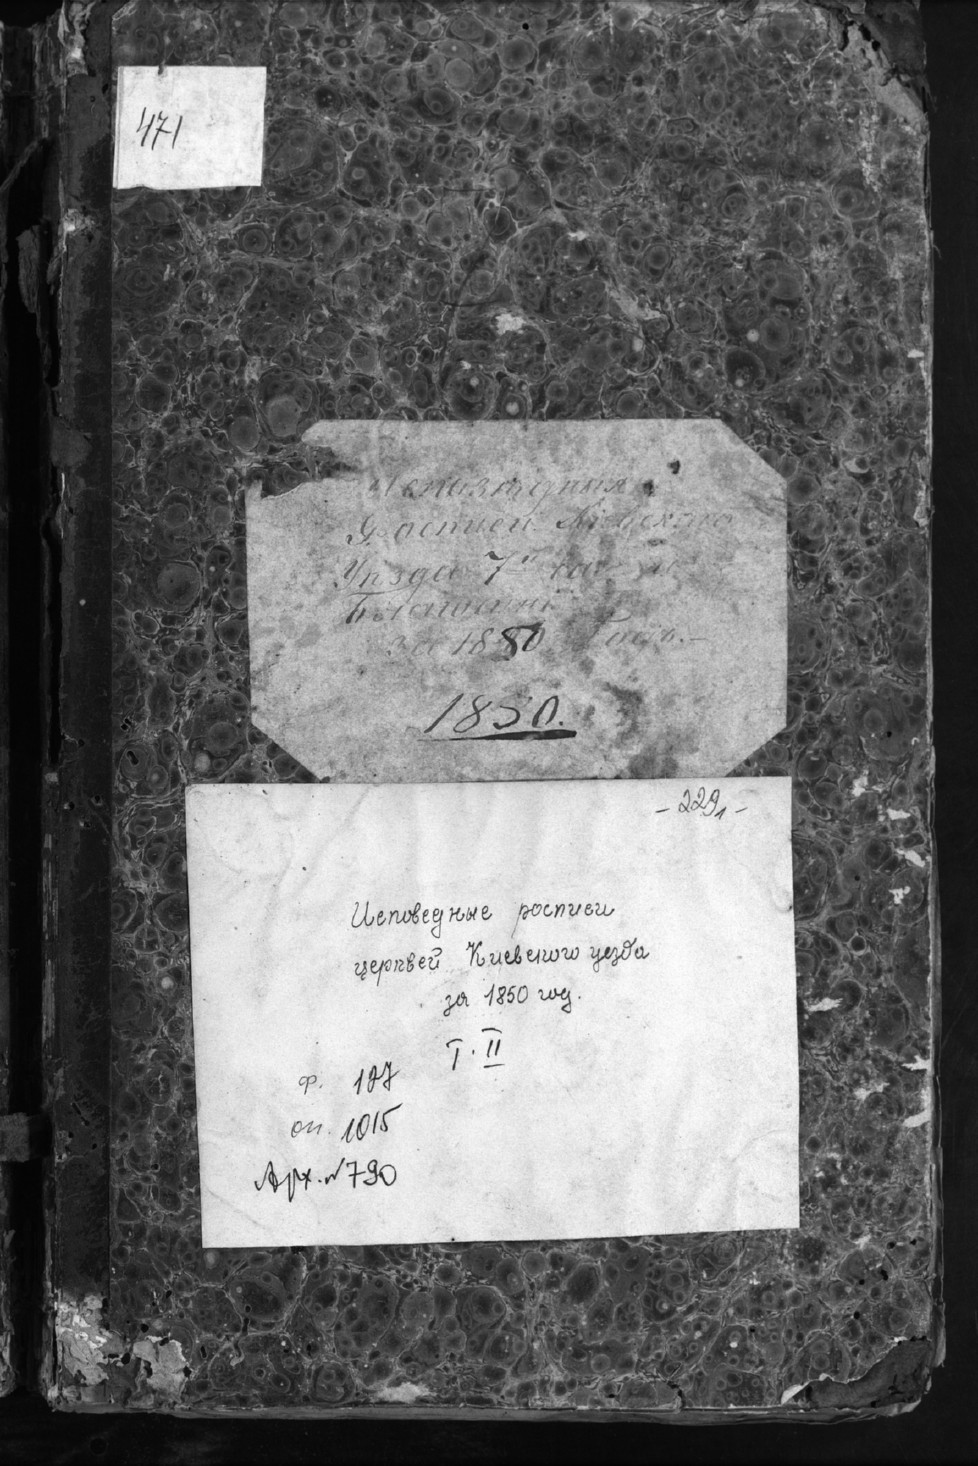 471
Исповѣдныя
Росписи Кіевскаго
Уѣзда 7й
за 1850 Годъ.-
1850.
- 229₁ -
Исповедные росписи
церквей Киевского уезда
за 1850 год.
Т. II
ф. 127
оп. 1015
Арх. № 790